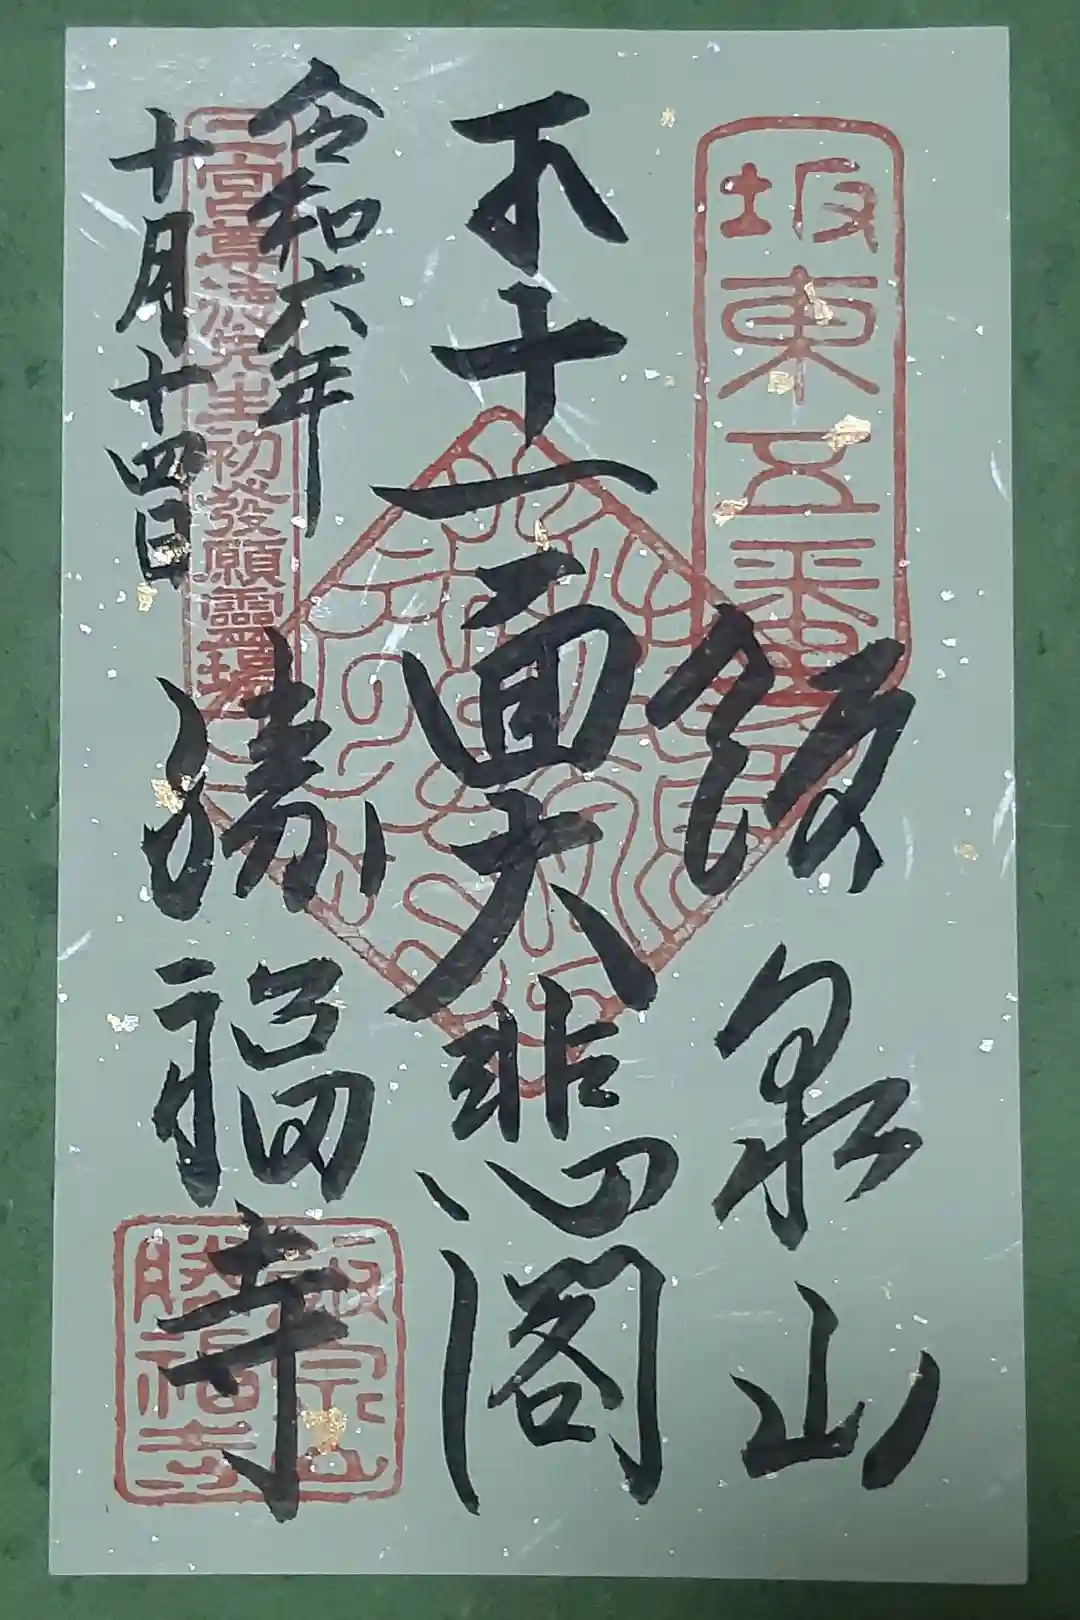 坂東五番
飯泉山
不十一面大悲閣
令和六年
十月十四日
二宮尊徳先生初發願霊場
勝福寺
飯泉山
勝福寺